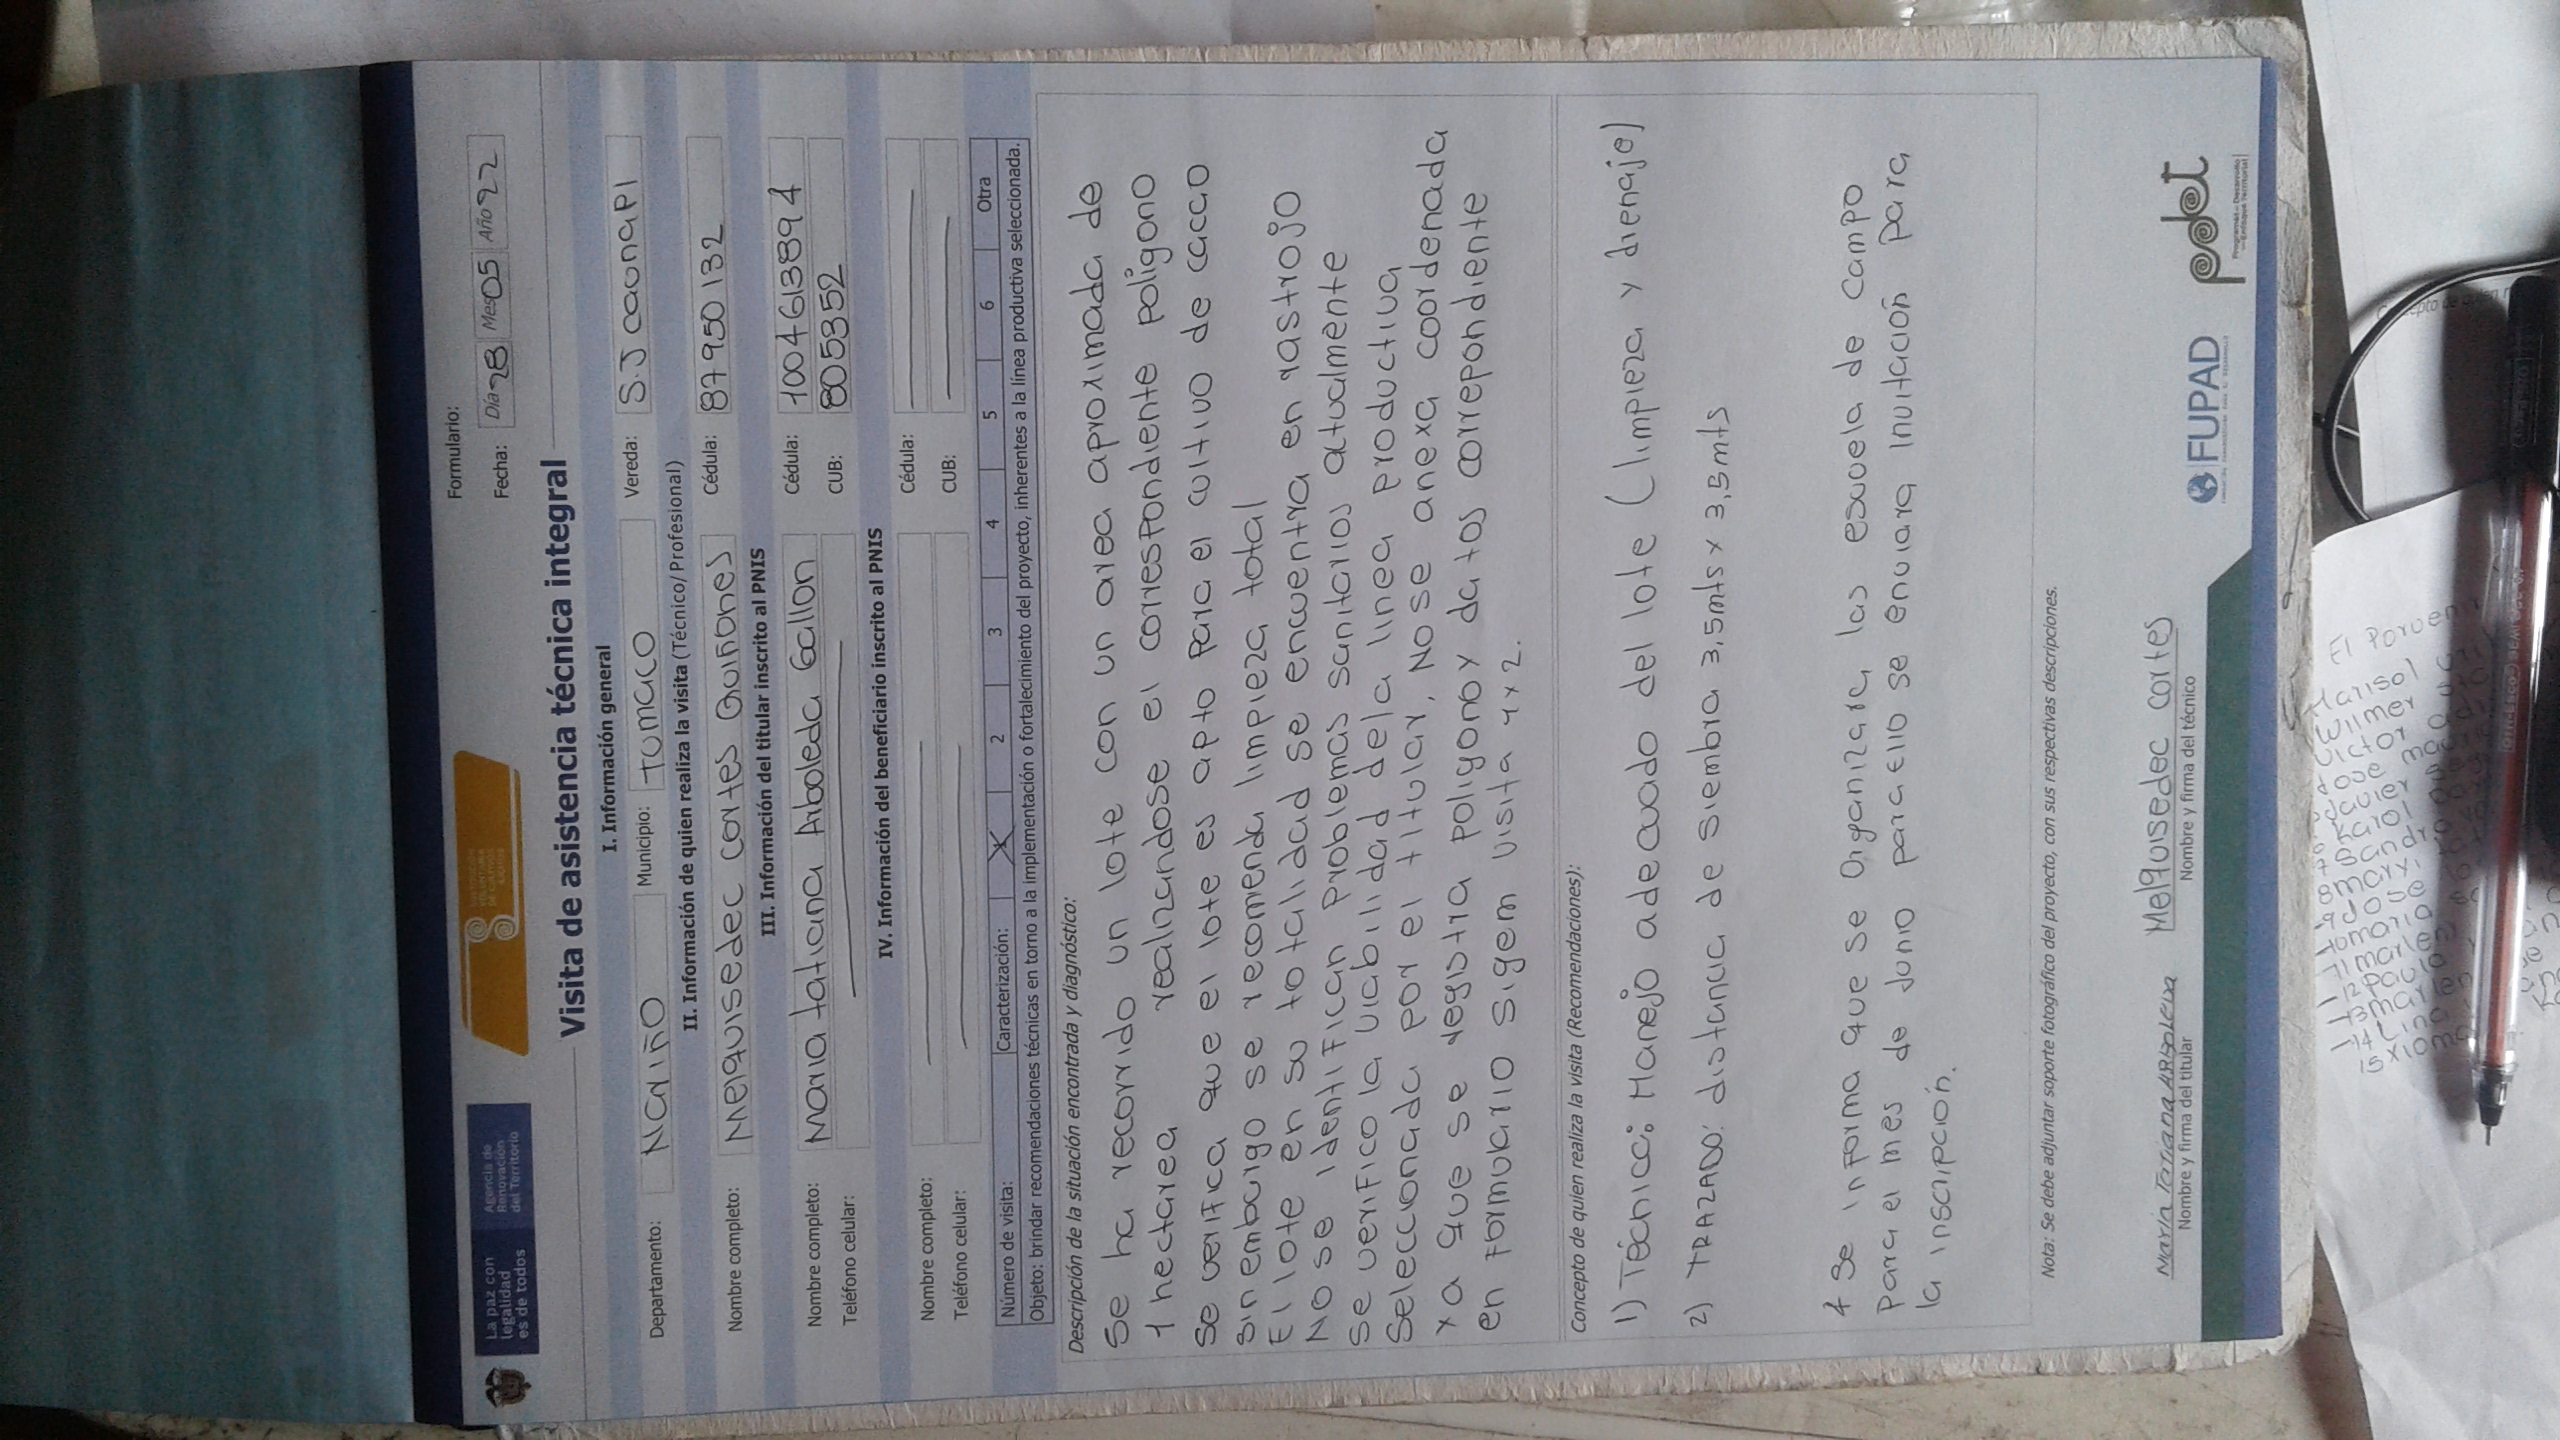 La paz con
legalidad
es de todos
Agencia de
Renovación
del Territorio
Formulario:
Fecha: Día 28 Mes 05 Año 22
Visita de asistencia técnica integral
I. Información general
Departamento: Nariño Municipio: tumaco Vereda: S.J caunapi
II. Información de quien realiza la visita (Técnico/ Profesional)
Nombre completo: Melquisedec cortes Quiñones Cédula: 87950132
III. Información del titular inscrito al PNIS
Nombre completo: Maria tatiana Arboleda Gallon Cédula: 1004613894
Teléfono celular: CUB: 805352
IV. Información del beneficiario inscrito al PNIS
Nombre completo: Cédula:
Teléfono celular: CUB:
Número de visita: Caracterización: X 2 3 4 5 6 Otra
Objeto: brindar recomendaciones técnicas en torno a la implementación o fortalecimiento del proyecto, inherentes a la línea productiva seleccionada.
Descripción de la situación encontrada y diagnóstico:
Se ha recorrido un lote con un area aproximada de
1 hectarea realizandose el correspondiente poligono
Se verifica que el lote es apto para el cultivo de cacao
Sin embargo se recomienda limpieza total
El lote en su totalidad se encuentra en rastrojo
No se identifican problemas sanitarios actualmente
Se verifico la viabilidad dela linea productiva
Seleccionada por el titular, No se anexa coordenada
xa que se registra poligono y datos correpondiente
en formulario sigem visita 1 x 2.
Concepto de quien realiza la visita (Recomendaciones):
1) Técnica: Manejo adecuado del lote (limpieza y drenaje)
2) TRAZADO: distancia de siembra 3,5mts x 3,5mts
+ Se informa que se Organizara las escuela de campo
Para el mes de Junio para Ello se enviara invitación para
la inscripción.
Nota: Se debe adjuntar soporte fotográfico del proyecto, con sus respectivas descripciones.
Maria Tatiana Arboleda
Nombre y firma del titular
Melquisedec cortes
Nombre y firma del técnico
FUPAD
pdet
Programas de Desarrollo
con Enfoque Territorial
El Porven
Marisol
Wilmer
Victor
Jose
Javier
Karol
Sandra
8 mary
9 Jose
10 maria
11 marlen
12 Paulo
13 marlen
14 Lina
15 xioma